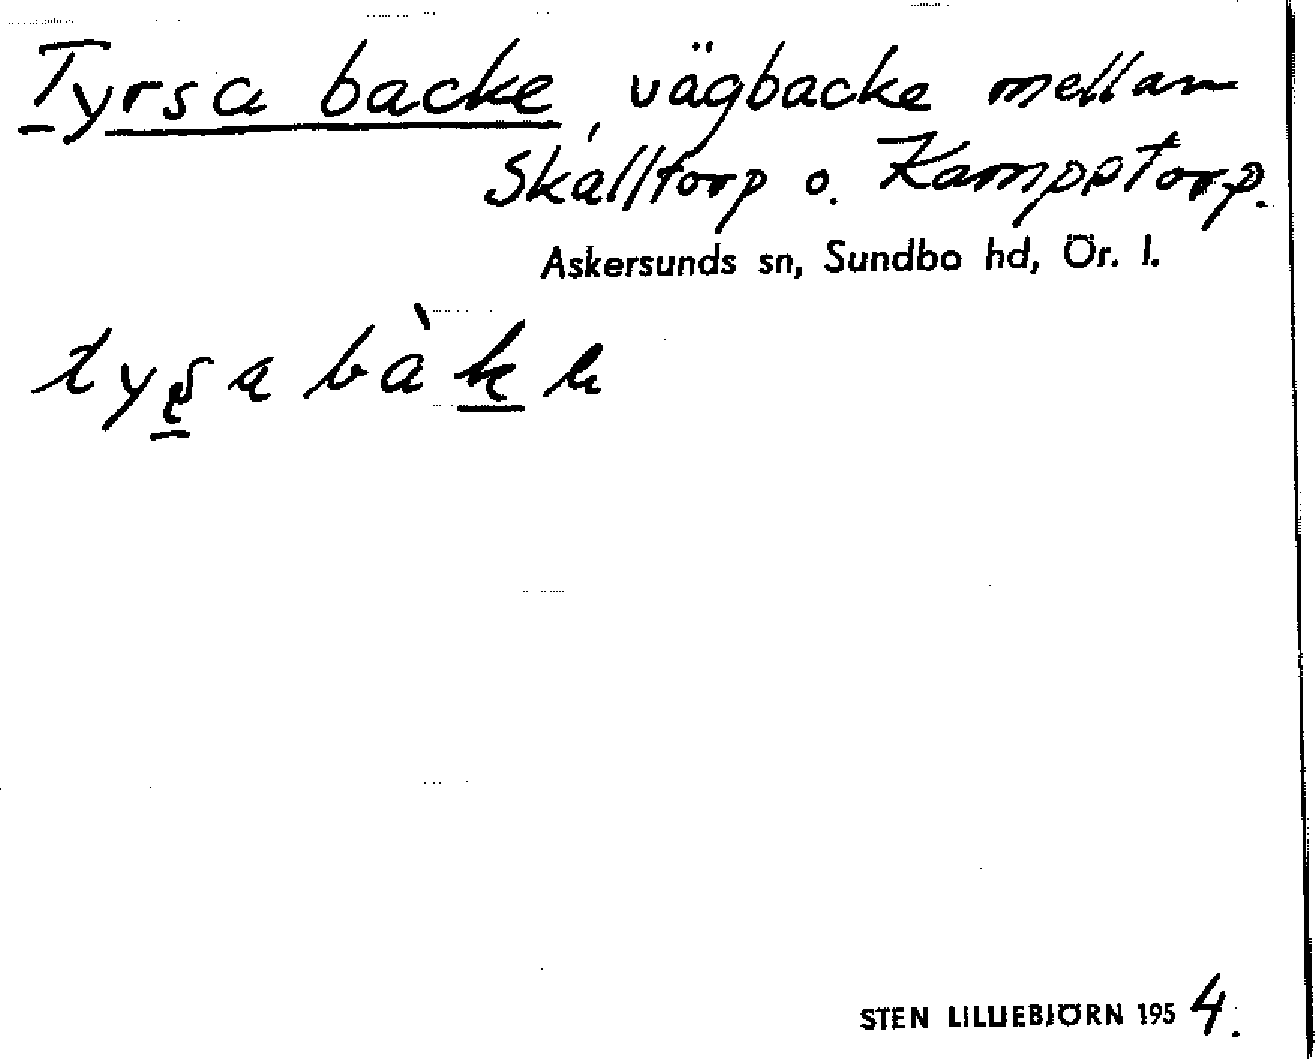 Tyrsa backe, vägbacke mellan
Skalltorp o. Kampetorp.
Askersunds sn, Sundbo hd, Ör. l.
STEN LILLIEBJÖRN 1954.